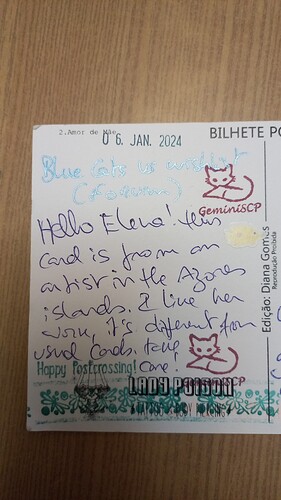 2. Amor de Mãe
0 6. JAN. 2024
BILHETE PO
Blue Cats to wishlist
GeminiSCP
Hello Elena! this
card is from an
artist in the Azores
islands. I like her
work, it's different from
usual cards. take
care!
Happy Postcrossing!
LADY POISON
Edição: Diana Gomes
Reprodução Proibida